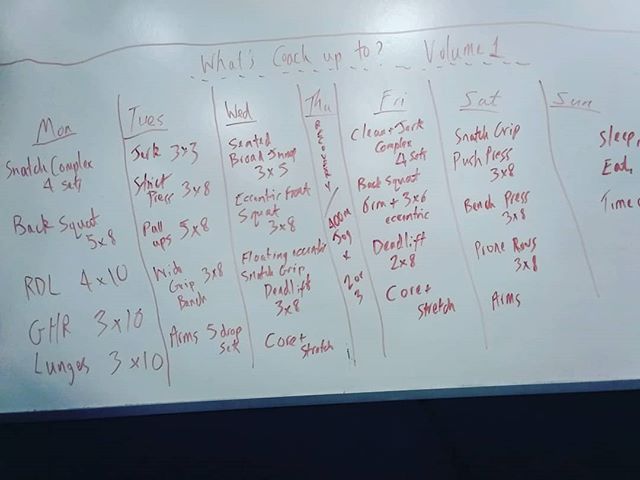 What's Coach up to? Volume 1
Mon
Snatch Complex
4 sets
Back Squat
5x8
RDL 4x10
GHR 3x10
Lunges 3x10
Tues
Jerk 3x3
Strict
Press 3x8
Pull
ups 5x8
Wide
Grip 3x8
Bench
Arms 5 drop
sets
Wed
Seated
Broad Jump
3x5
Eccentric front
Squat
3x8
Floating eccentric
Snatch Grip
Deadlift
3x8
Core +
Stretch
Thu
RECOVERY
400m
Jog
x
2 or
3
Fri
Clean + Jerk
Complex
4 sets
Back Squat
6rm + 3x6
eccentric
Deadlift
2x8
Core +
stretch
Sat
Snatch Grip
Push Press
3x8
Bench Press
3x8
Prone Rows
3x8
Arms
Sun
Sleep,
Eat,
Time